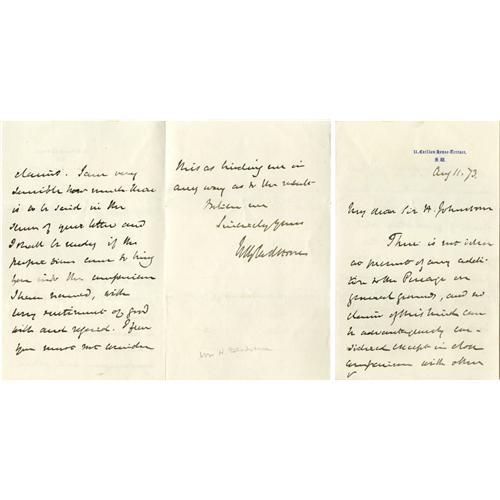 11, Carlton House Terrace,
S. W.
Aug 11. 73
My dear Sir H. Johnstone
There is not idea
at present of any addi-
tion to the Peerage on
general grounds, and no
claim of this kind can
be advantageously con-
sidered except in close
comparison with other
claims. I am very
sensible how much there
is to be said in the
sense of your letter and
I shall be ready if the
proper time come to bring
you into the comparison
I have named, with
every sentiment of good
will and regard. I fear
you must not consider
this as binding me in
any way as to the result
Believe me
Sincerely yours
W E Gladstone
Wm H. Gladstone